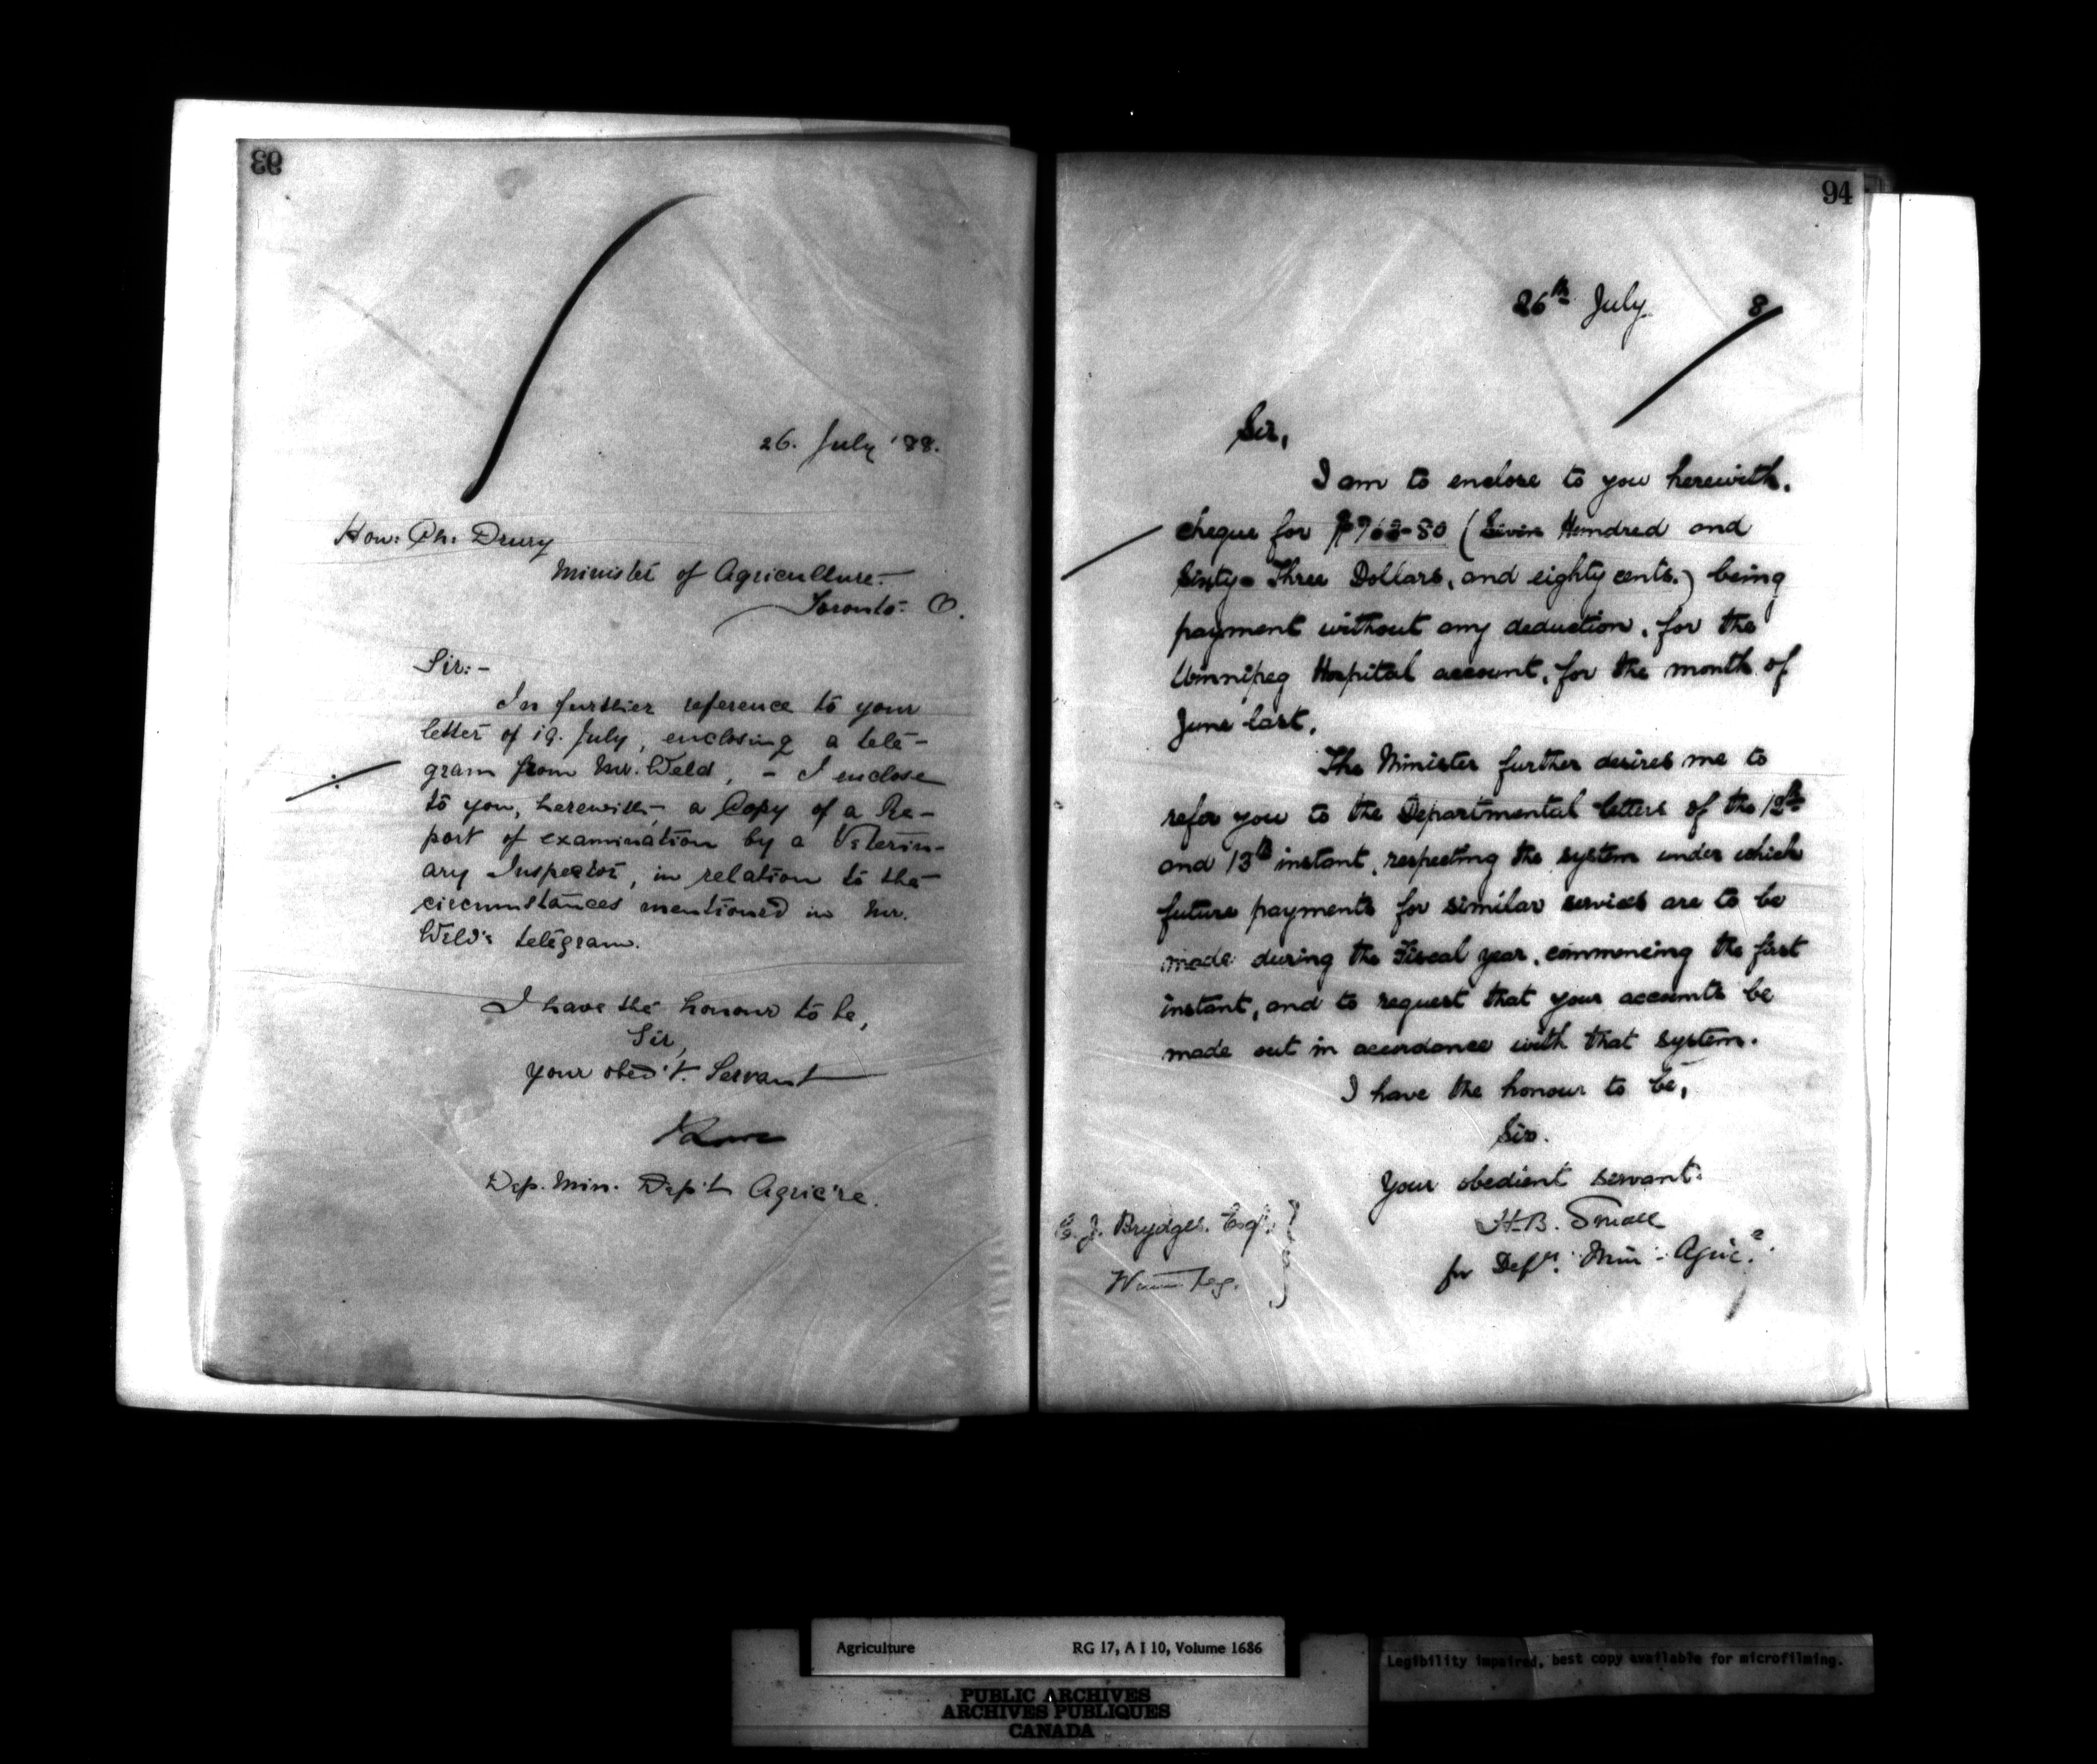 93
26. July '88.
Hon: Ch: Drury
Minister of Agriculture.
Toronto. O.
Sir:-
In further reference to your
letter of 19. July, enclosing a tele-
gram from Mr. Weld, - I enclose
to you, herewith, a Copy of a Re-
port of examination by a Veterin-
ary Inspector, in relation to the
circumstances mentioned in Mr.
Weld's telegram.
I have the honour to be,
Sir,
Your obed't. Servant
Dep. Min. Dep't Agric're.
94
26th July 8
Sir,
I am to enclose to you herewith,
cheque for $763-80 (Seven Hundred and
Sixty-Three Dollars, and eighty cents.) being
payment without any deduction, for the
Winnipeg Hospital account, for the month of
June last.
The Minister further desires me to
refer you to the Departmental letters of the 12th
and 13th instant, respecting the system under which
future payments for similar services are to be
made during the Fiscal year, commencing the first
instant, and to request that your accounts be
made out in accordance with that system.
I have the honour to be,
Sir.
Your obedient servant.
H.B. Small
for Depy. Min. Agric.
C. J. Brydges. Esq.
Winnipeg.
Agriculture RG 17, A I 10, Volume 1686
Legibility impaired, best copy available for microfilming.
PUBLIC ARCHIVES
ARCHIVES PUBLIQUES
CANADA